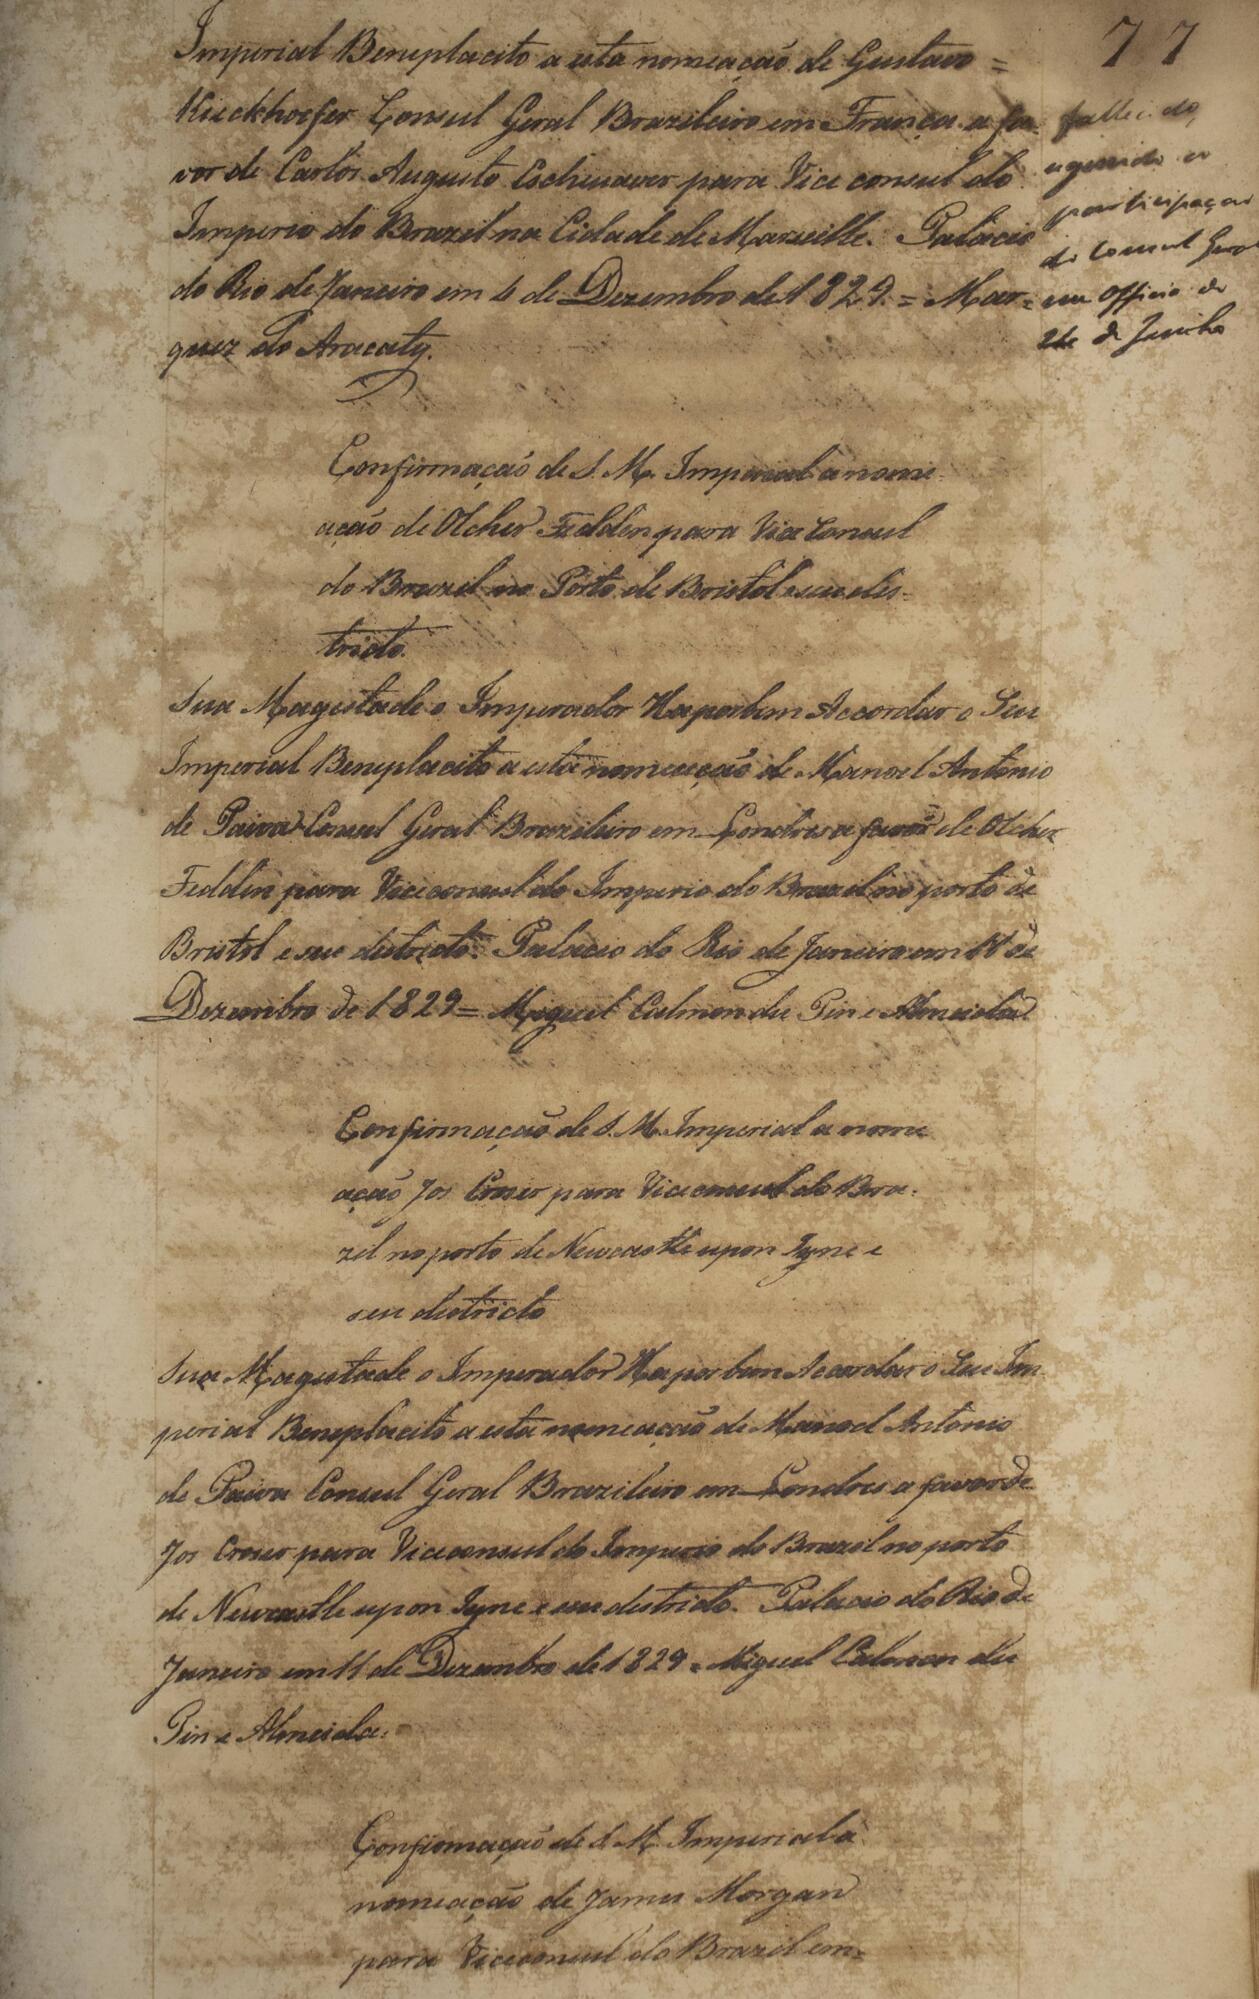 77
Imperial Beneplacito a esta nomeação de Gustavo =
Kieckhoefer Consul Geral Brazileiro em França a fa-
vor de Carlos Augusto Eschenauer para Vice consul do
Imperio do Brazil na Cidade de Marseille. Palacio
do Rio de Janeiro em 4 de Dezembro de 1829. = Mar=
quez do Aracaty.
fallecido,
segundo a
participaçao
do Consul Geral
em Officio de
24 de Junho
Confirmação de S. M. Imperial a nome-
ação de Olcher Feddin para Vice Consul
do Brazil no Porto de Bristol e seu dis-
tricto.
Sua Magestade o Imperador Ha por bem Accordar o Seu
Imperial Beneplacito a esta nomeação de Manoel Antonio
de Paiva Consul Geral Brazileiro em Londres a favor de Olcher
Feddin para Vice consul do Imperio do Brazil no porto de
Bristol e seu districto. Palacio do Rio de Janeiro em 11 de
Dezembro de 1829 = Miguel Calmon du Pin e Almeida
Confirmação de S. M. Imperial a nome
ação Jos Croser para Vice consul do Bra-
zil no porto de Newcastle upon Tyne e
seu districto
Sua Magestade o Imperador Ha por bem Accordar o Seu Im
perial Beneplacito a esta nomeação de Manoel Antonio
de Paiva Consul Geral Brazileiro em Londres a favor de
Jos Croser para Vice consul do Imperio do Brazil no porto
de Newcastle upon Tyne e seu districto. Palacio do Rio de
Janeiro em 11 de Dezembro de 1829 = Miguel Calmon du
Pin e Almeida.
Confirmação de S. M. Imperial a
nomeação de James Morgan
para Vice consul do Brazil em=